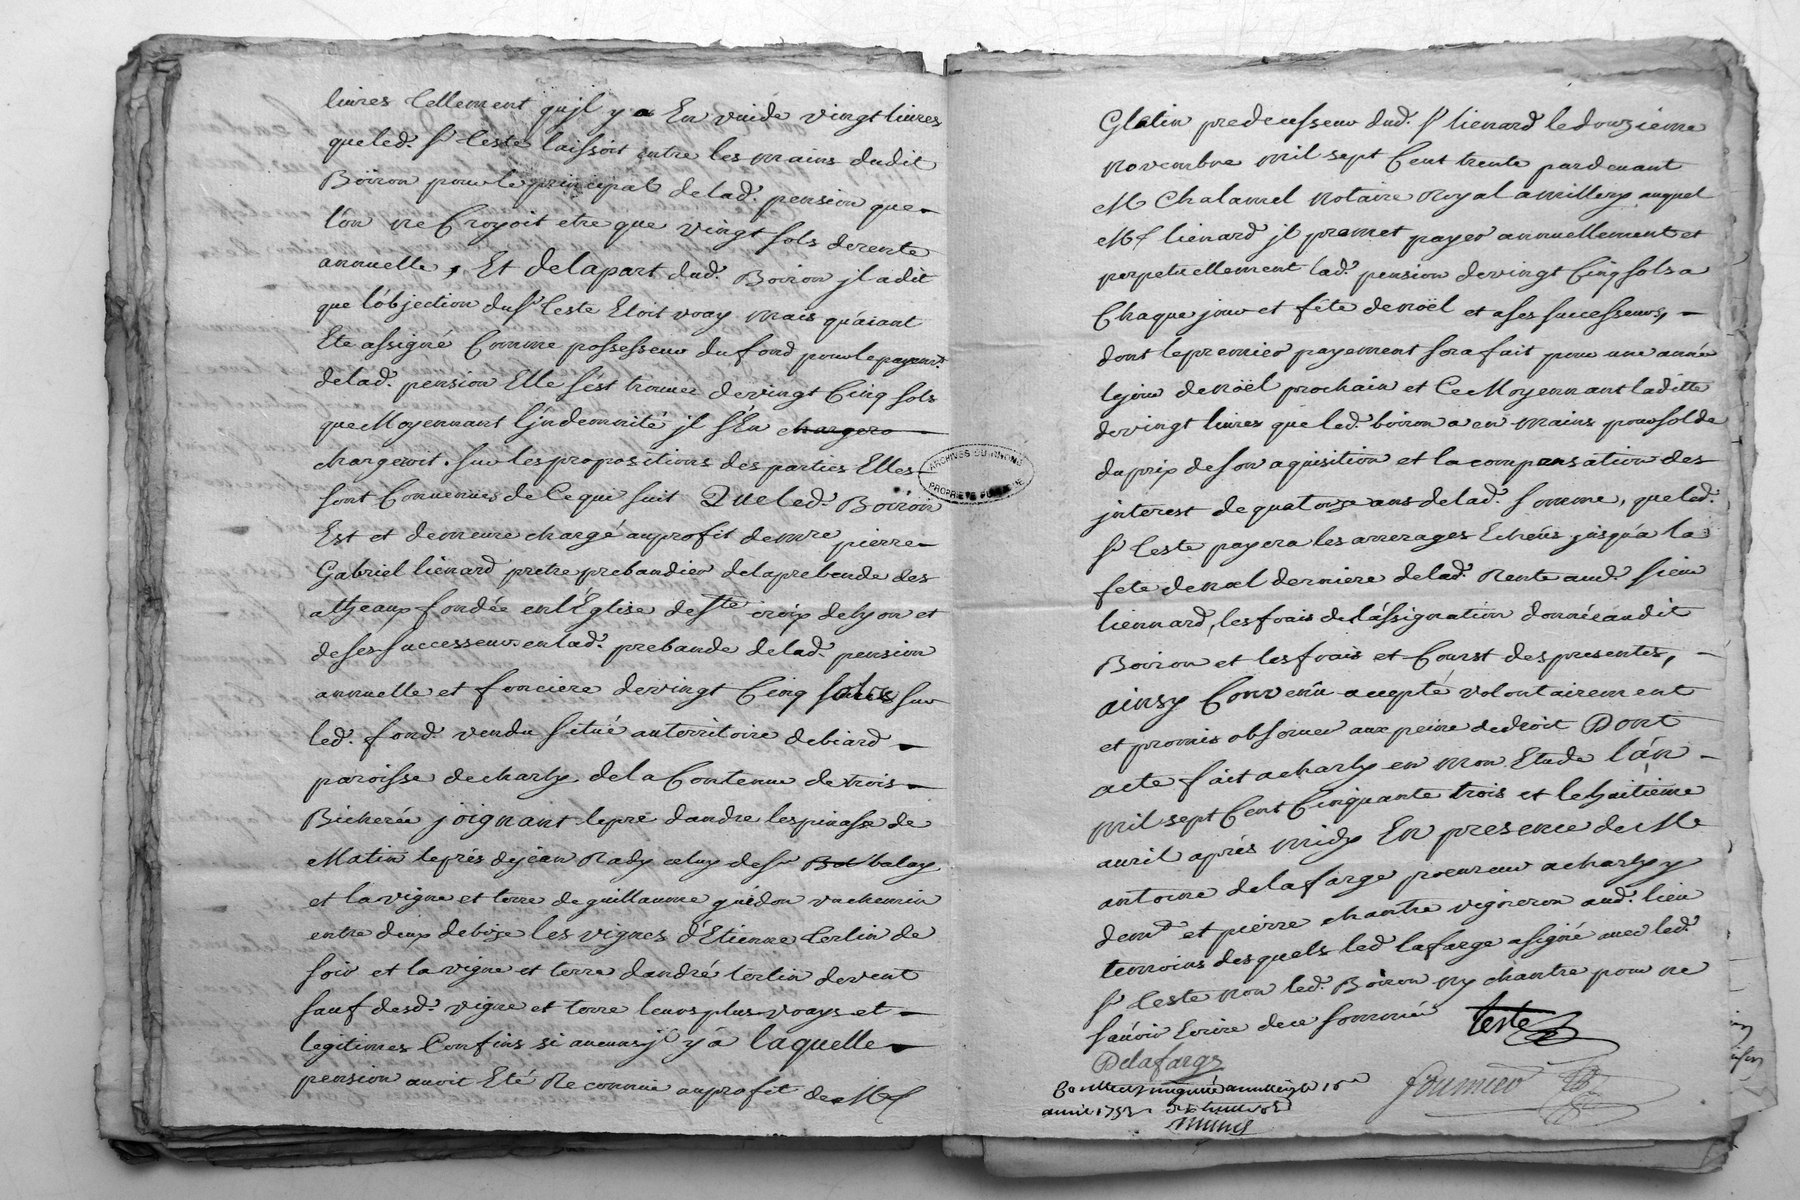 livres tellement qujl y a En vuide vingt livres
queled. Sr teste laissoit entre les mains dudit
Boiron pour le principal delad. pension que
l'on ne Croyoit etre que vingt sols derente
annuelle, Et delapart dud. Boiron jl adit
que l'objection du Sr teste Etoit vray mais qu'aiant
Ete assigné Comme possesseur du fond pour le payemt
delad. pension Elle s'est trouvée devingt Cinq sols
que Moyennant l'jndemnité jl s'En chargero
chargeroit. sur les propositions des parties Elles
sont Convenues de Ce qui suit Queled. Boiron
Est et demeure chargé auprofit de mre pierre
Gabriel lienard pretre prebandier delaprebende des
fondée en l'Eglise de Ste croix delyon et
deses successeurs enlad. prebande delad. pension
annuelle et fonciere devingt Cinq sur
led. fond vendu situé au territoire debiard
paroisse decharly dela Contenue detrois
Bicherée joignant lepré d'andré lespinasse de
Matin leprés dejean Rady celuy de Sr Bal balay
et lavigne et terre de guillaume guédon vn chemin
entre deux debize les vignes d'Etienne terlin de
soir et lavigne et terre dandré terlin devent
sauf desd. vigne et terre leurs plus vrays et
legitimes Confins si aucuns jl y a laquelle
pension avoit Eté Reconnue auprofit de Mr
Glatin predecesseur dud. Sr lienard ledouzieme
novembre mil sept Cent trente pardevant
Me Chalamel notaire Royal amillery auquel
Mr lienard jl promet payer annuellement et
perpetuellement lad. pension devingt Cinq sols a
Chaque jour et fête denoël et ases successeurs,
dont lepremier payement sera fait pour une année
lejour denoël prochain et Ce Moyennant laditte
devingt livres queled. boiron a en mains pour solde
duprix deson aquisition et lacompensation des
jnterest dequatorze ans delad. somme, queled.
Sr teste payera les arrerages Echeüs jusqu'a la
fete denoel derniere delad. Rente aud. sieur
liennard, les frais del'assignation donnée audit
Boiron et les frais et Coust despresentes,
ainsy Convenü accepté volontairement
et promis observer aux peine dedroit Dont
acte fait acharly en mon Etude l'an
mil sept Cent Cinquante trois et lehuitieme
avril aprés midy En presence de Me
antoine delafarge procureur acharly y
demt et pierre chantre vigneron aud. lieu
temoins desquels led lafarge asigné avec led.
Sr teste non led. Boiron ny chantre pour ne
sçavoir Ecrire dece sommés teste
Delafarge
fournier
avril 1753